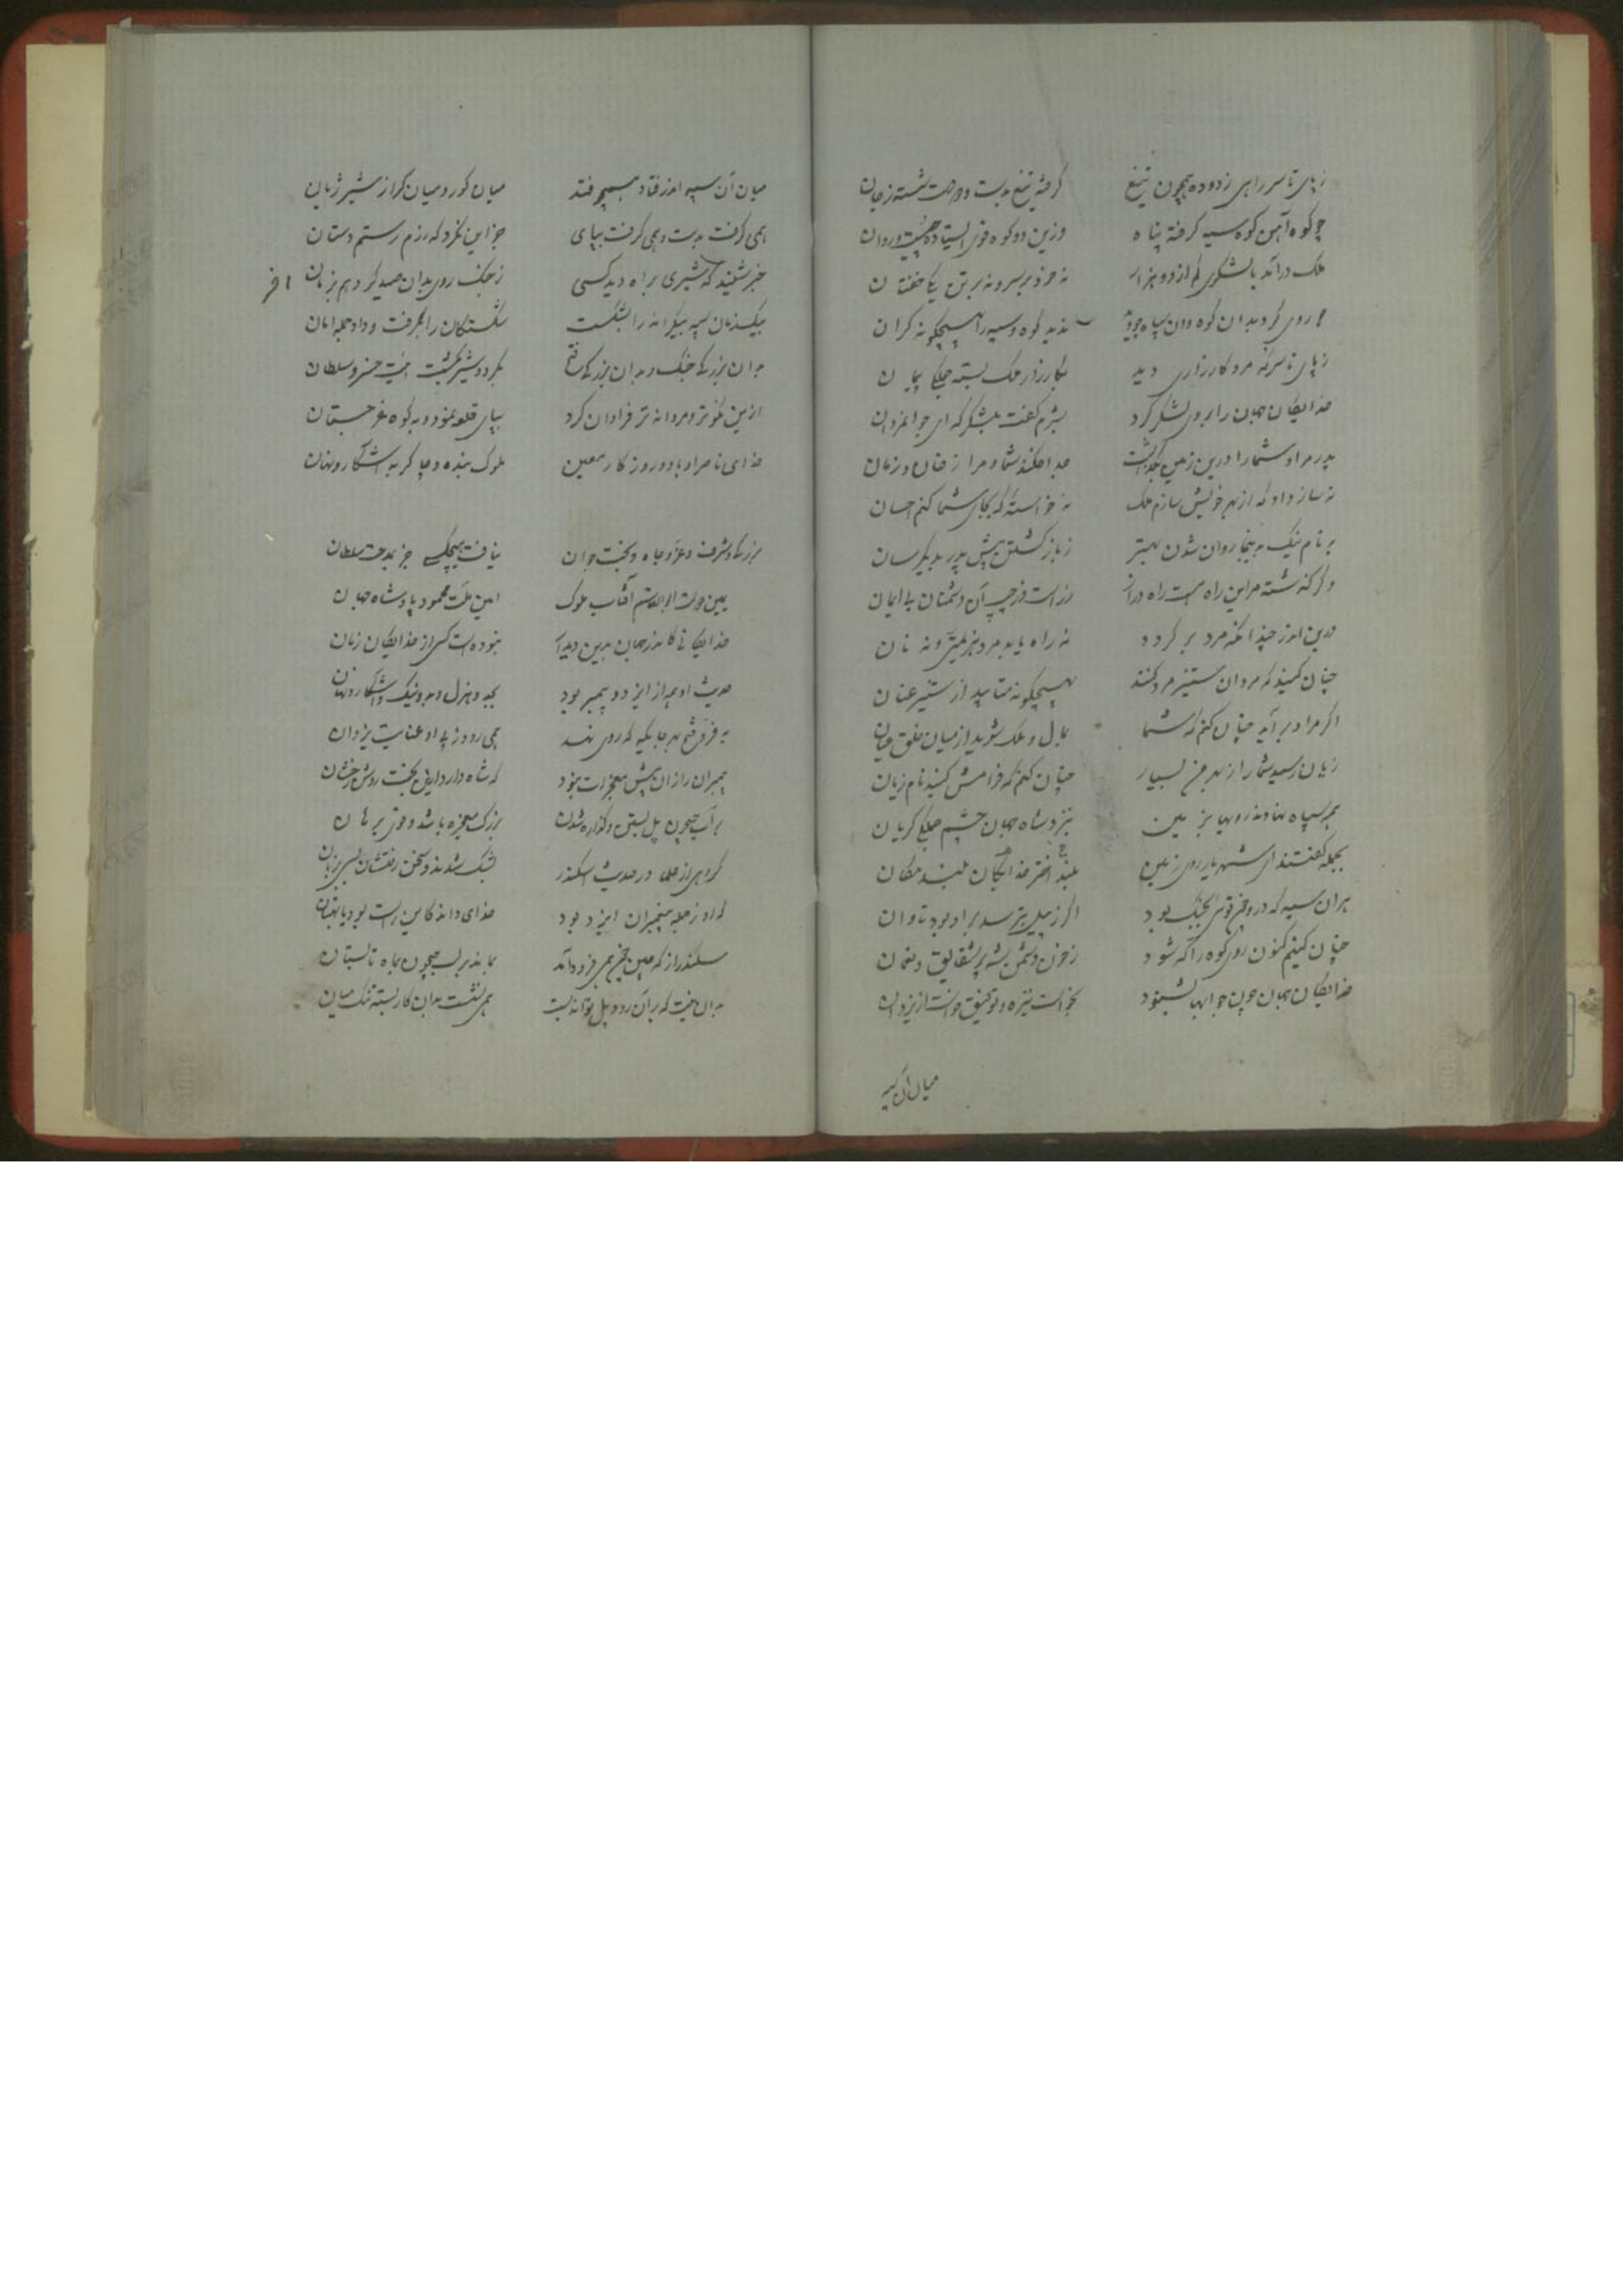 ز پای تا سر راهی زدوده همچون تیغ گرفته تیغ بدست و دو دست شسته ز جان
چو کوه آهن کوه سیه گرفته پناه وزین دو کوه قوی ایستاده
ملک درآمد با لشکری کم از دو هزار نه خود بر سر و نه بر تن یکی خفتان
چو روی کرد بدان کوه و آن سپاه ندید کوه و سپه را هیچگونه کران
ز پای تا سر که مرد کارزاری دید بکارزار ملک بسته جملگی پیمان
خدایگان جهان را بروی لشکر کرد بشرم گفت بلشکر که ای جوانمردان
پدر مرا و شما را درین زمین بگذاشت جدا فکند شما و مرا ز خان و زمان
نه ساز داد که از بهر خویش سازم ملک نه خواسته که بجای شما کنم احسان
بنام نیک ازینجا روان شدن بهتر ز باز گشتن پیش پدر بدیگر سان
وگر گذشته مر این راه هست راه دراز
درین اندر چندانکه مرد برگردد نه راه یابد مرد هزیمتی و نه نان
چنان کنید که مردان ستیز مرد کنند هیچگونه متابید از ستیز عنان
اگر مراد برآید چنان کنم که شما بمال و ملک شوید از میان خلق عیان
زیان رسید شما را از بهر من بسیار چنان کنم که فرامش کنید نام زیان
همه سپاه نهادند رویها بزمین بنزد شاه جهان چشم جملگی گریان
بجمله گفتند ای شهریار روی زمین بلند اختر خدایگان بلند مکان
بران سپه که درو قوی بجنگ بود اگر ز پیل بترسد برو بود تاوان
چنان کنیم کنون روی کوه را که شود ز خون دشمن پشته پر شقایق و نعمان
خدایگان جهان چون جوابها بشنود بخواست نیزه و توفیق خواست از یزدان
میان آن سپه
میان آن سپه اندر فتاد همچو فتد میان گور و میان گراز شیر ژیان
همی گرفت بدست و همی گرفت بپای جز این نکرد که رزم رستم دستان
خبر شنید که شیری براه دید کسی ز جنگ روی بدان صید کرد هم بزمان
بیکزمان سپه بیکرانه را بشکست شکستگان را بگرفت و داد جمله امان
بدان بزرگی جنگ و بدان بزرگی فتح بکرد و شیر بکشت اینت خسرو سلطان
ازین نکوتر و مردانه‌تر فراوان کرد بپای قلعه نمود و به کوه غرجستان
خدای ناصر او باد و روزگار معین ملوک بنده و چاکر به آشکار و نهان
بزرگی و شرف و عز و جاه و بخت جوان نیافت هیچکسی جز بمدحت سلطان
یمین دولت ابوالقاسم آفتاب ملوک امین ملت محمود پادشاه جهان
خدایگانی کاندر جهان بدین دیدار نبوده است کس از خدایگان زمان
حدیث او همه از ایزد و پیمبر بود بجد و هزل و بد و نیک و آشکار و نهان
به فر و فتح بهر جایگه که روی نهد همی رود ز پی او عنایت یزدان
پیمبران را زان پیش معجزات نبود که شاه دارد ازین بخت روشن رخشان
بر آب جیحون پل بستن و گذاره شدن بزرگ معجزه باشد و قوی برهان
گروهی از علما در حدیث اسکندر بشک شدند و سخن رفتشان بسی بزبان
که او ز جمله پیغمبران ایزد بود خدای داند کاین راست بود یا بهتان
سکندر از که بچین همی فرود آمد بماند بر لب جیحون بماه تابستان
بدان نیت که بر آن رود پل تواند بست همی نشست بدان کار بسته تنگ میان